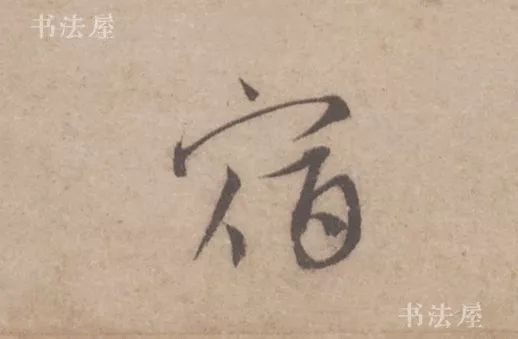 书法屋
宿
书法屋